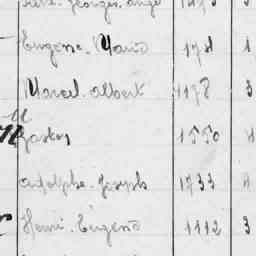 Georges. Ange 1475 3
Eugène. Marie 178 1
Marcel. Albert 1178 3
Gaston 1550 4
Adolphe. Joseph 1733 4
Henri. Eugène 1112 3